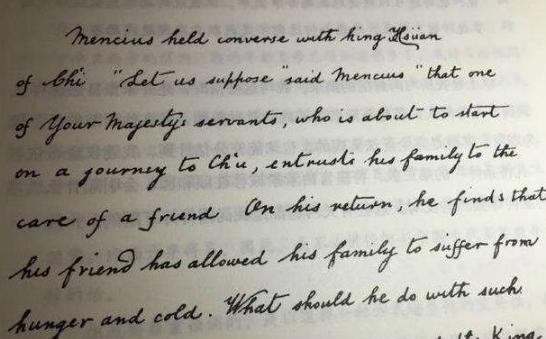 Mencius held converse with king Hsüan
of Ch'i "Let us suppose" said Mencius "that one
of Your Majesty's servants, who is about to start
on a journey to Ch'u, entrusts his family to the
care of a friend On his return, he finds that
his friend has allowed his family to suffer from
hunger and cold. What should he do with such
King.